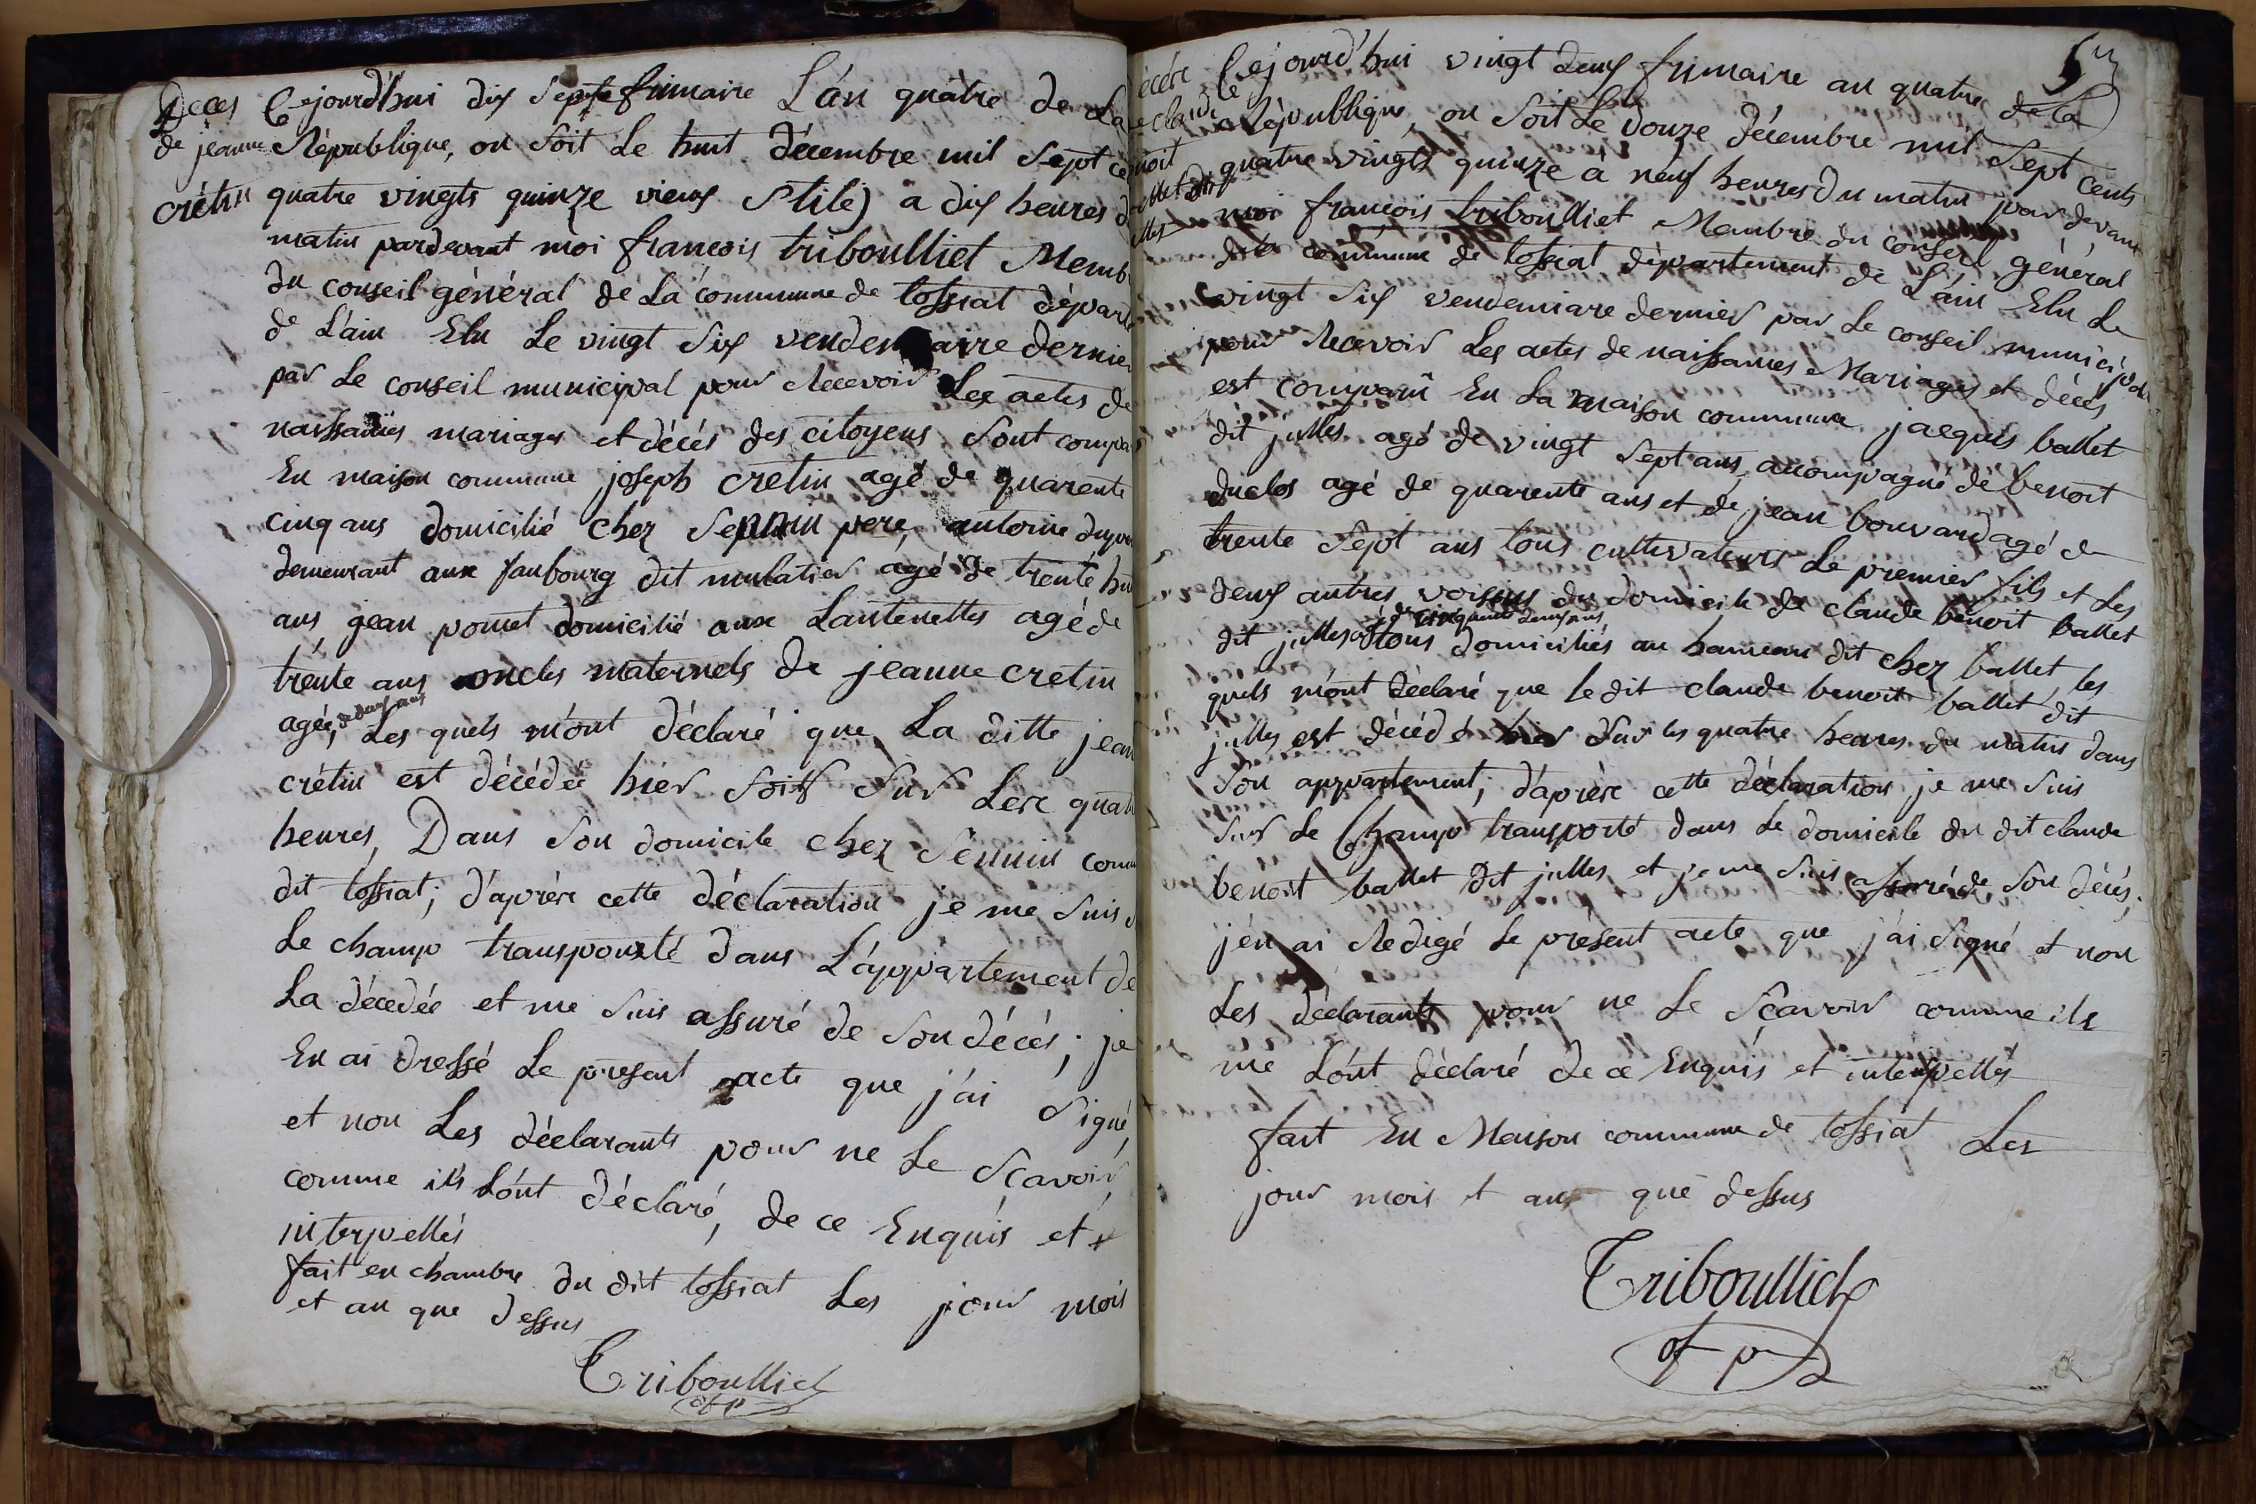 Deces
de jeanne
crétin
Cejourd'hui dix Sept frimaire L'án quatre de La
République, ou Soit Le huit décembre mil Sept ce
quatre vingts quinze vieux Stile) a dix heures d
matin pardevant moi francois triboulliet Memb
du conseil général de La commune de tossiat départe
de L'ain Elu Le vingt Six vendemiaire dernier
par Le conseil municipal pour Recevoir Les actes de
naissances mariages et décés des citoyens. Sont compa
En maison commune joseph cretin agé de quarente
cinq ans domicilié chez Sennin pere, antoine
demeurant aux faubourg dit mulatier agé de trente hu
ans jean pomet domicilié aux Lantenettes agé de
trente ans oncles maternels de jeanne cretin
agée, de deux ans Les quels m'ont déclaré que La ditte jean
crétin est décédée hier Soir Sur Les quatr
heures, Dans Son domicile chez Sennin com
dit tossiat; d'après cette déclaration je me Suis
Le champ transpourté dans L'appartement de
La décedée et me Suis assuré de Son décés; je
En ai dressé Le present acte que j'ai Signé,
et non Les déclarants pour ne Le Scavoir
comme ils L'ont déclaré, de ce Enquis et
interpellés
fait en chambre du dit tossiat Les jour mois
et an que dessus
Triboulliet
of p
5
écés
claude
noit
ballet dit
jules
Cejourd'hui vingt deux frimaire an quatre de la
République, ou Soit Le Douze décembre mil Sept cents
quatre vingts quinze à neuf heures du matin par devant
moi francois triboulliet Membre du conseil général
de la commune de tossiat département de L'ain Elu Le
vingt Six vendemiare dernier par Le conseil municipal
pour Recevoir Les actes de naissances Mariages et décés
est comparu En La maison commune jacques ballet
dit julles agé de vingt Sept ans acompagné de benoit
duclos agé de quarente ans et de jean bouvard agé de
trente Sept ans tous cultivateurs Le premier fils et Les
deux autres voisins du domicile de claude benoit ballet
agé de cinquante deux ans
dit julles tous domiciliés au hameau dit chez ballet les
quels m'ont déclaré que le dit claude benoit ballet dit
julles est décédé hier Sur les quatre heures du matin dans
Son appartement; d'après cette déclaration je me Suis
Sur Le Champ transporté dans Le domicile du dit claude
benoit ballet Dit julles et je me Suis assuré de Son décés;
j'en ai Redigé Le présent acte que j'ai Signé et non
Les déclarants pour ne Le Scavoir comme ils
me L'ont déclaré de ce Enquis et interpellés
fait En Maison commune de tossiat Les
jour mois et ans que dessus
Triboulliet
of p